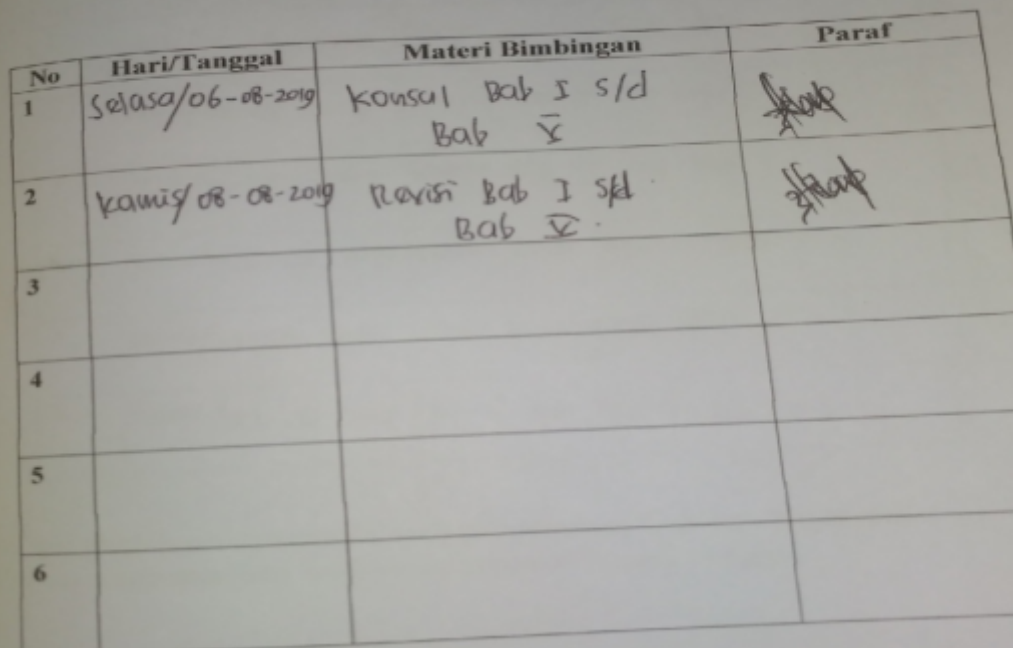 No Hari/Tanggal Materi Bimbingan Paraf
1 Selasa/06-08-2019 Konsul Bab I s/d
Bab V
2 Kamis/08-08-2019 Revisi Bab I s/d
Bab V.
3
4
5
6